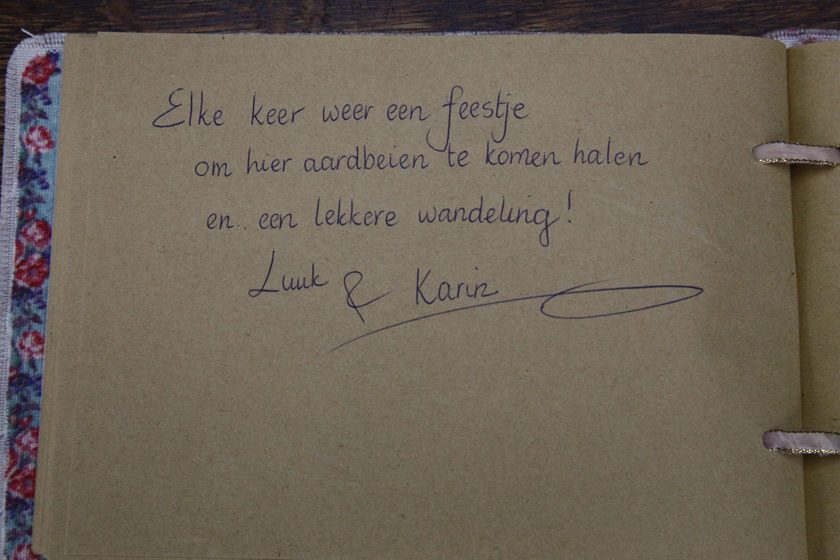 Elke keer weer een feestje
om hier aardbeien te komen halen
en.. een lekkere wandeling!
Luuk & Karin